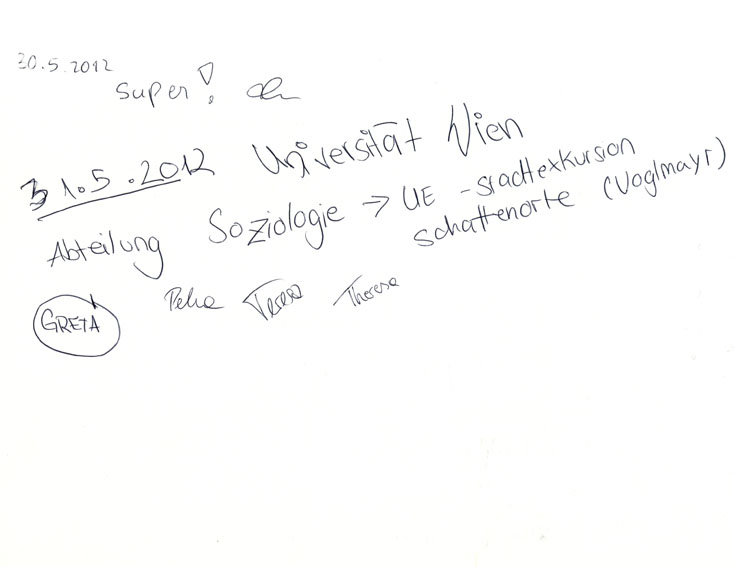 30.5.2012
super!
31.5.2012 Universität Wien
Abteilung Soziologie → UE - Stadtexkursion
Schattenorte (Voglmayr)
GRETA Petra Teresa Therese